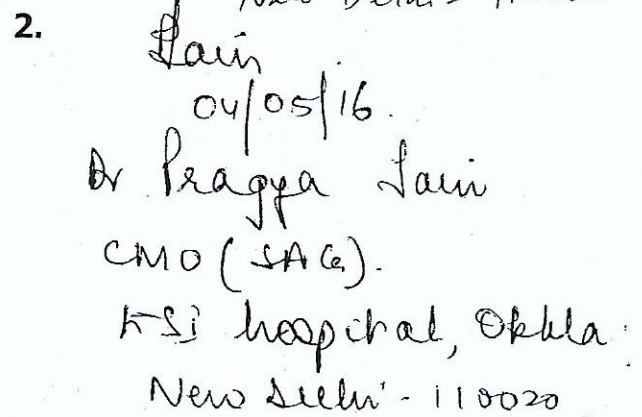 New Delhi
2.
Jain
04/05/16.
Dr Pragya Jain
CMO (SAG).
ESI hospital, Okhla
New Delhi - 110020